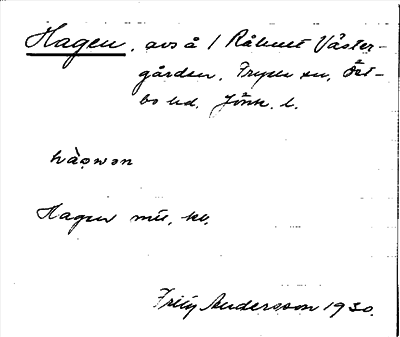 Hagen, avs å 1 Råhult Väster-
gården, Fryele sn, Öst-
bo hd. Jönk. l.
hàọwən
Hagen mtl. kb.
Fritz Andersson 1930.